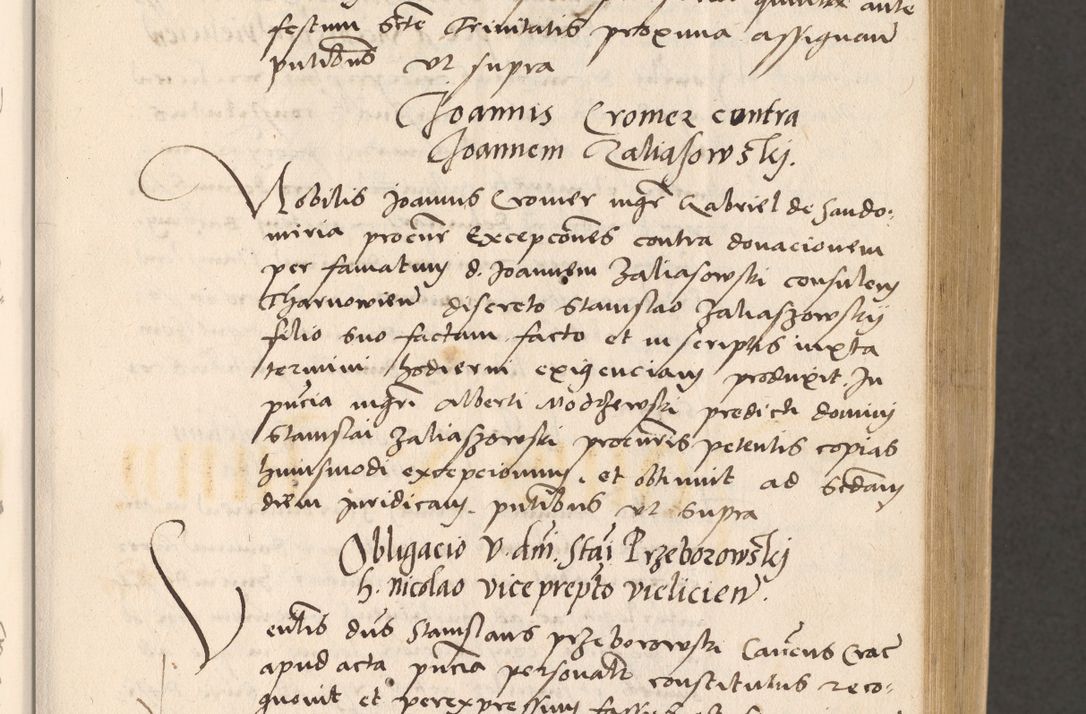 ante
festum Scte Trinitatis proxima assignan
pntibus ut supra
Joannis Cromer contra
Joannem Zaliasowski.
Nobilis Joannes Cromer mgri Gabriel de Sando:
miria procur Excepcones contra donacionem
per famatum d. Joannem Zaliasowski consulem
Tharnowien discreto Stanislao Zaliaszowskij
filio suo factam facto et in scriptis iuxta
termini hodierni exigenciam produxit. In
pncia mgri Alberti Modrzewski predicti domini
Stanislai Zaliaszowski procuris petentis copias
huiusmodi excepcionum, et obtinuit ad Scdam
diem Juridicam. pntibus ut supra
Obligacio V. dni Stai Przeborowskij
h. Nicolao vice prepto Vielicien.
Venlis dns Stanislaus przeborowski Canus Crac
apud acta pncia personalr constitutus reco:
gnovit et per expressum